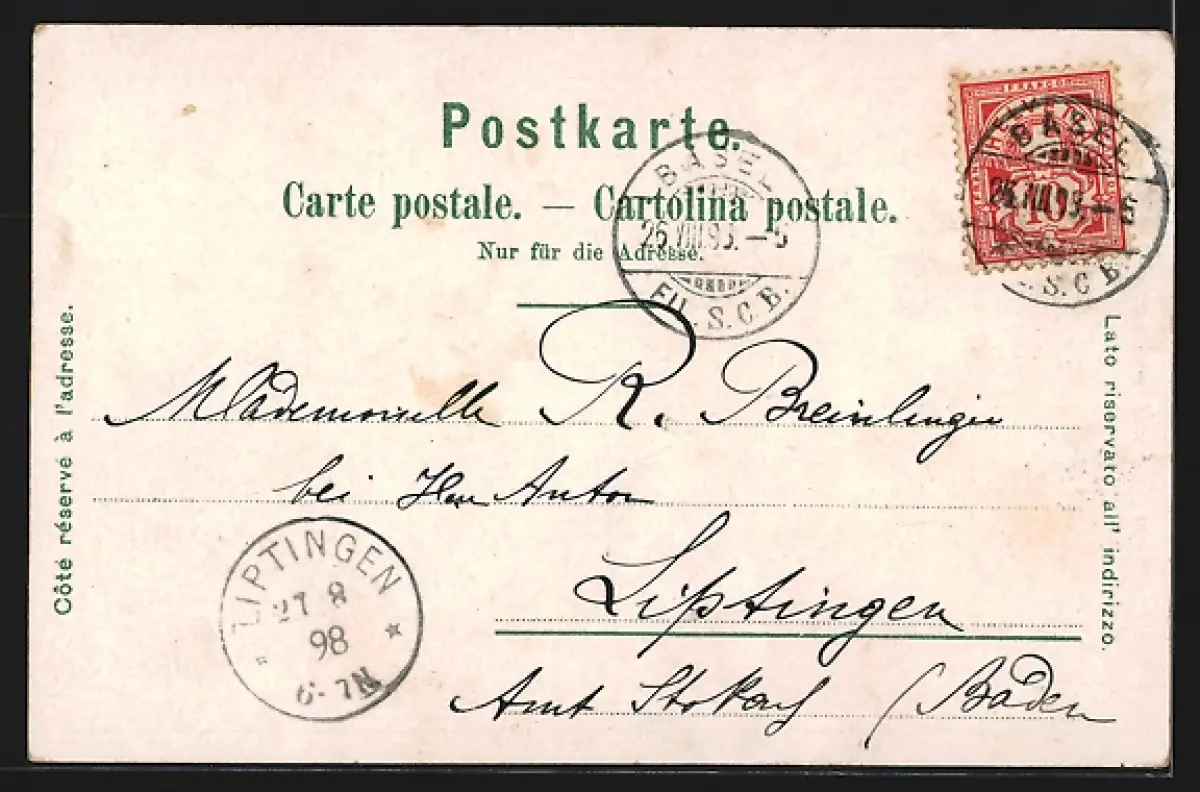 Postkarte.
Carte postale. — Cartolina postale.
Nur für die Adresse.
FRANCO
HELVETIA
10
BASEL
26.VIII.98.–5
FIL. S.C.B.
BASEL
26.VIII.98.–5
S.C.B.
Côté réservé à l'adresse.
Lato riservato all' indirizzo.
Mademoiselle R. Breinlinger
bei Herr Anton
Liptingen
Amt Stokach (Baden
LIPTINGEN
27 8
98
6-7N